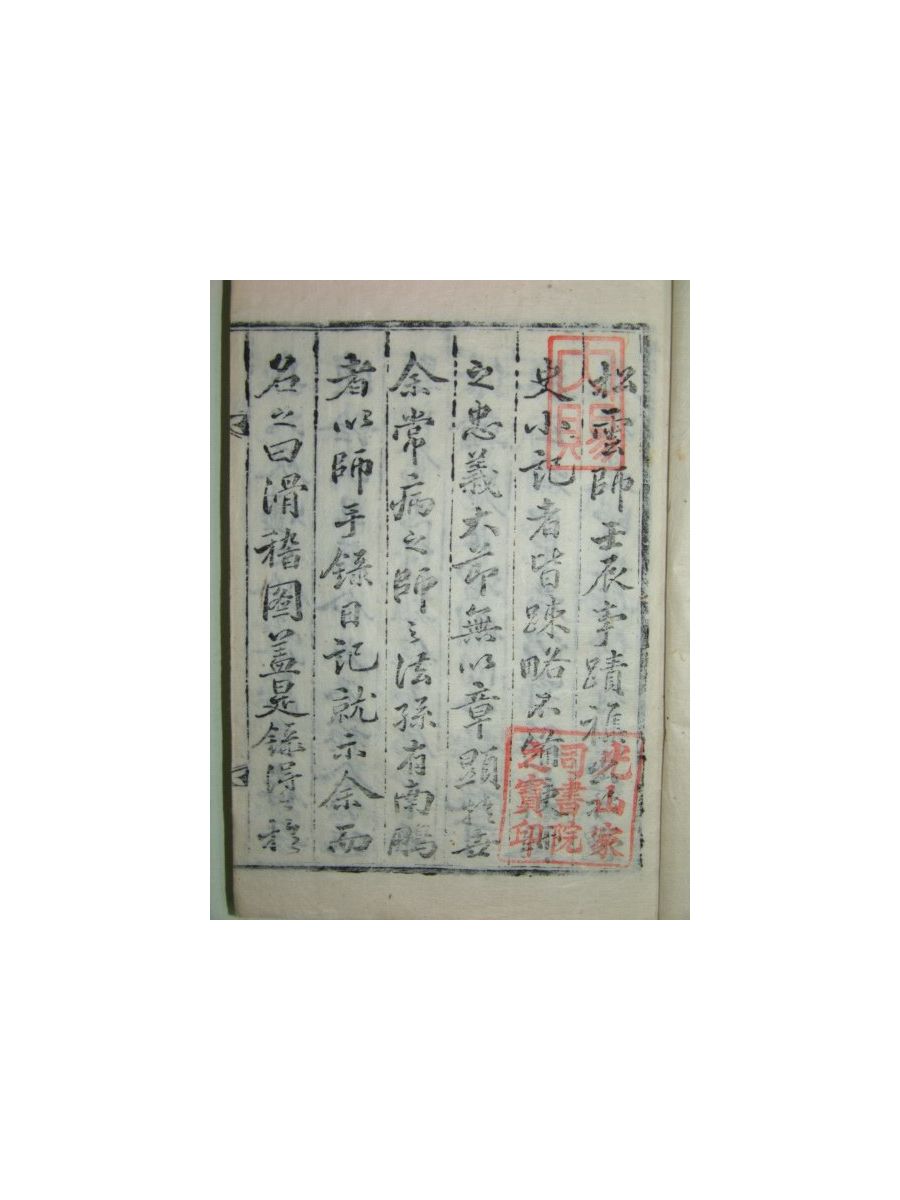 松雲師壬辰事蹟
史小記者皆踈略不
之忠義大節無以章顯
余常病之師之法孫有南鵬
者以師手錄日記就示余而
名之曰滑稽圖盖是錄得於
內賜
司書院
之寶印